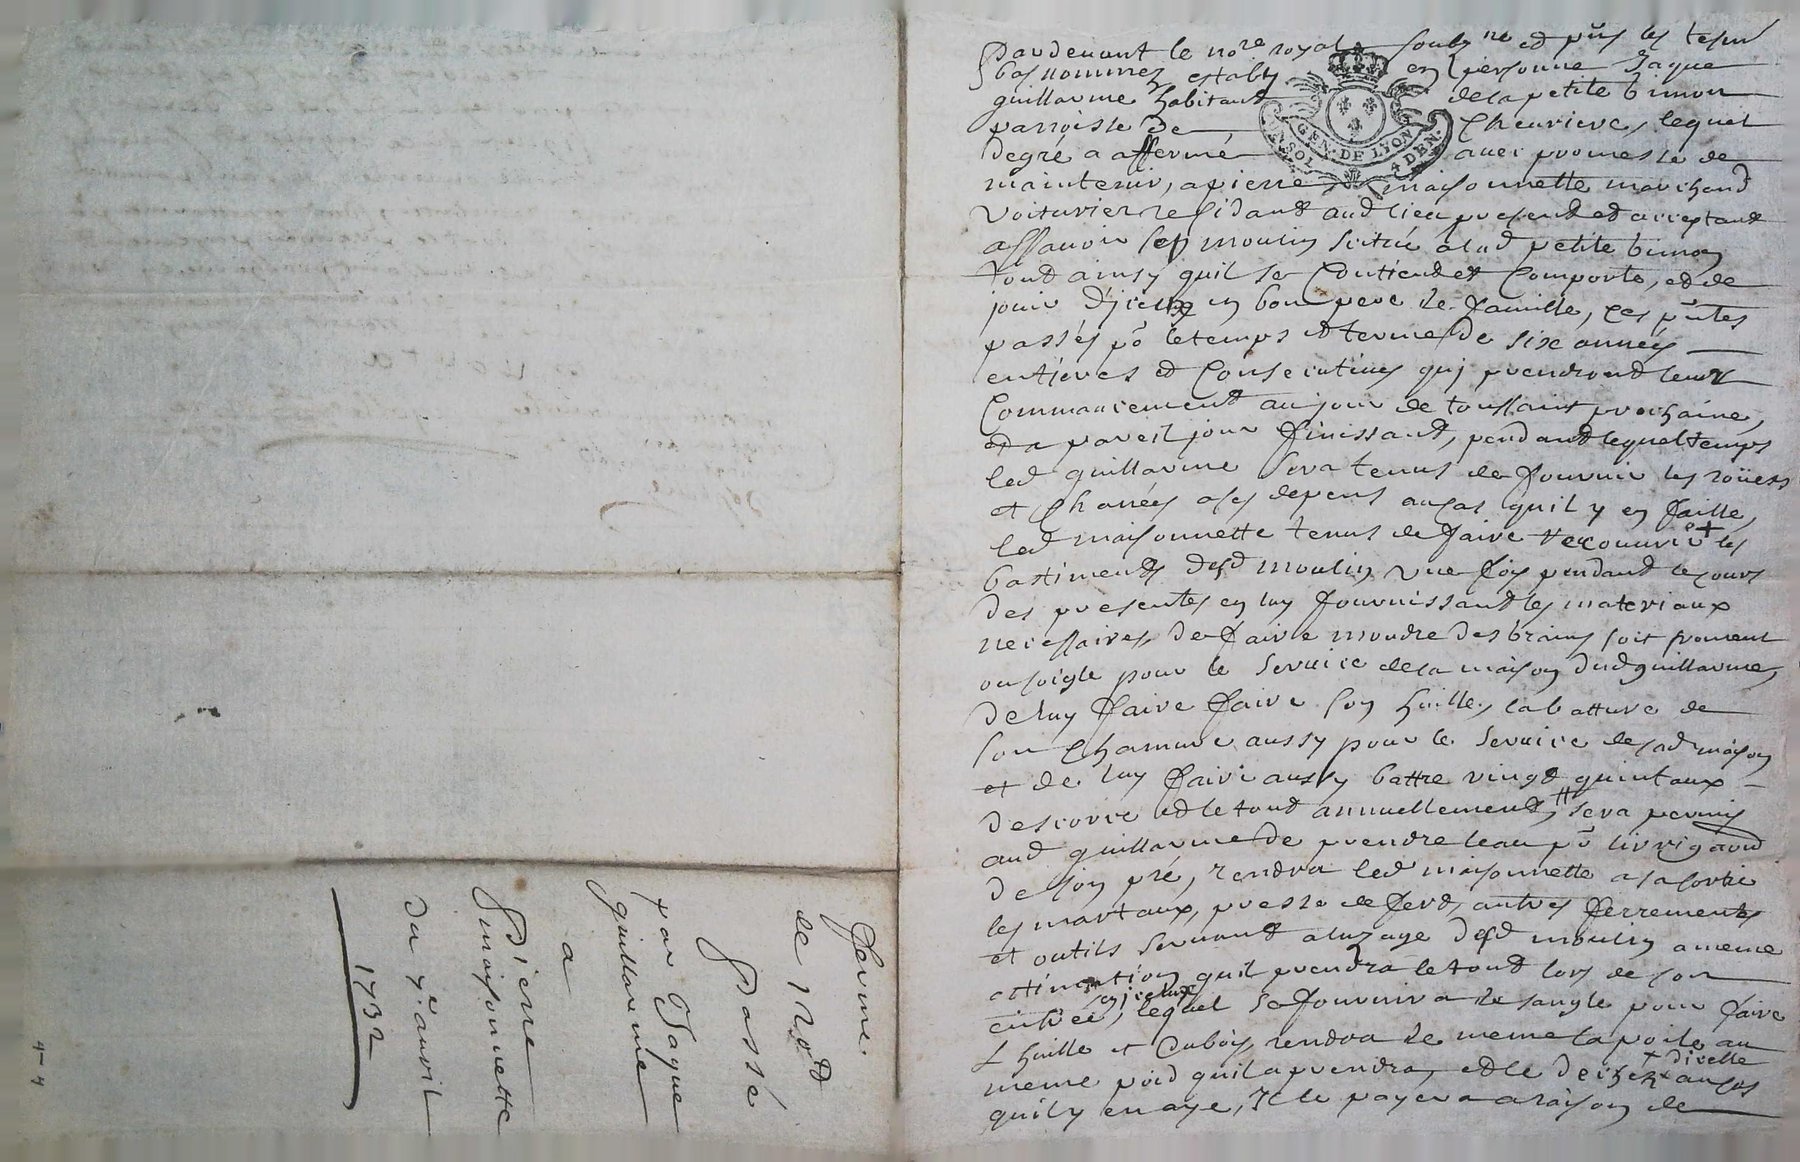 Pardevant le no.re royal soub.ne et pñs les tesm
bas nommez estably en personne Jaque
guillaurme habitant de la petite bimon
parroisse de Chevriere, lequel
degré a affermé avec promesse de
maintenir, a pierre maisonnette marchand
voiturier residant aud lieu present et acceptant
assavoir ses moulin scitué à lad petite bimon
tout ainsy quil se Contient et Comporte, et de
jouir d'jceux en bon pere de famille, ces pñtes
passéз põ le temps et terme de sixe années
entjeres et Consecutives quj prendront leur
Commancement au jour de toussaint prochaine,
et a pareil jour finissant, pendant lequel temps
led guillaurme sera tenus de fournir les roües
et a ses depens au cas quil y en faille,
led maisonnette tenus de faire recouvrir les
bastiments desd moulin une fois pendant le cours
des presentes en luy fournissant les materiaux
necessaires, de faire moudre des grains soit froment
ou soigle pour le service de sa maison dud guillaurme,
de luy faire faire son huille, la batture de
son Chamure aussy pour le service de sad maison
et de luy faire aussy battre vingt quintaux
descorce et le tout annuellement, sera permis
aud guillaurme de prendre leau põ
de son pré, rendra led maisonnette a sa sortie
les martaux, presse de fert, autres ferrements
et outils servant a luzage desd moulin a meme
estimation quil prendra le tout lors de son
en jceux
entrée, lequel se fournira de sangle pour faire
L huille et Cubois, rendra de meme la poile au
+ dicelle
meme poid quil a prendra, et le dechet au cas
quil y en aye, Il le payera a raison de
ferme
de 120 #
Passé
par Jaque
guillaurme
a
Pierre
maisonnette
du 7.e avril
1732
4-4
GEN. DE LYON
UN SOL 4 DEN.